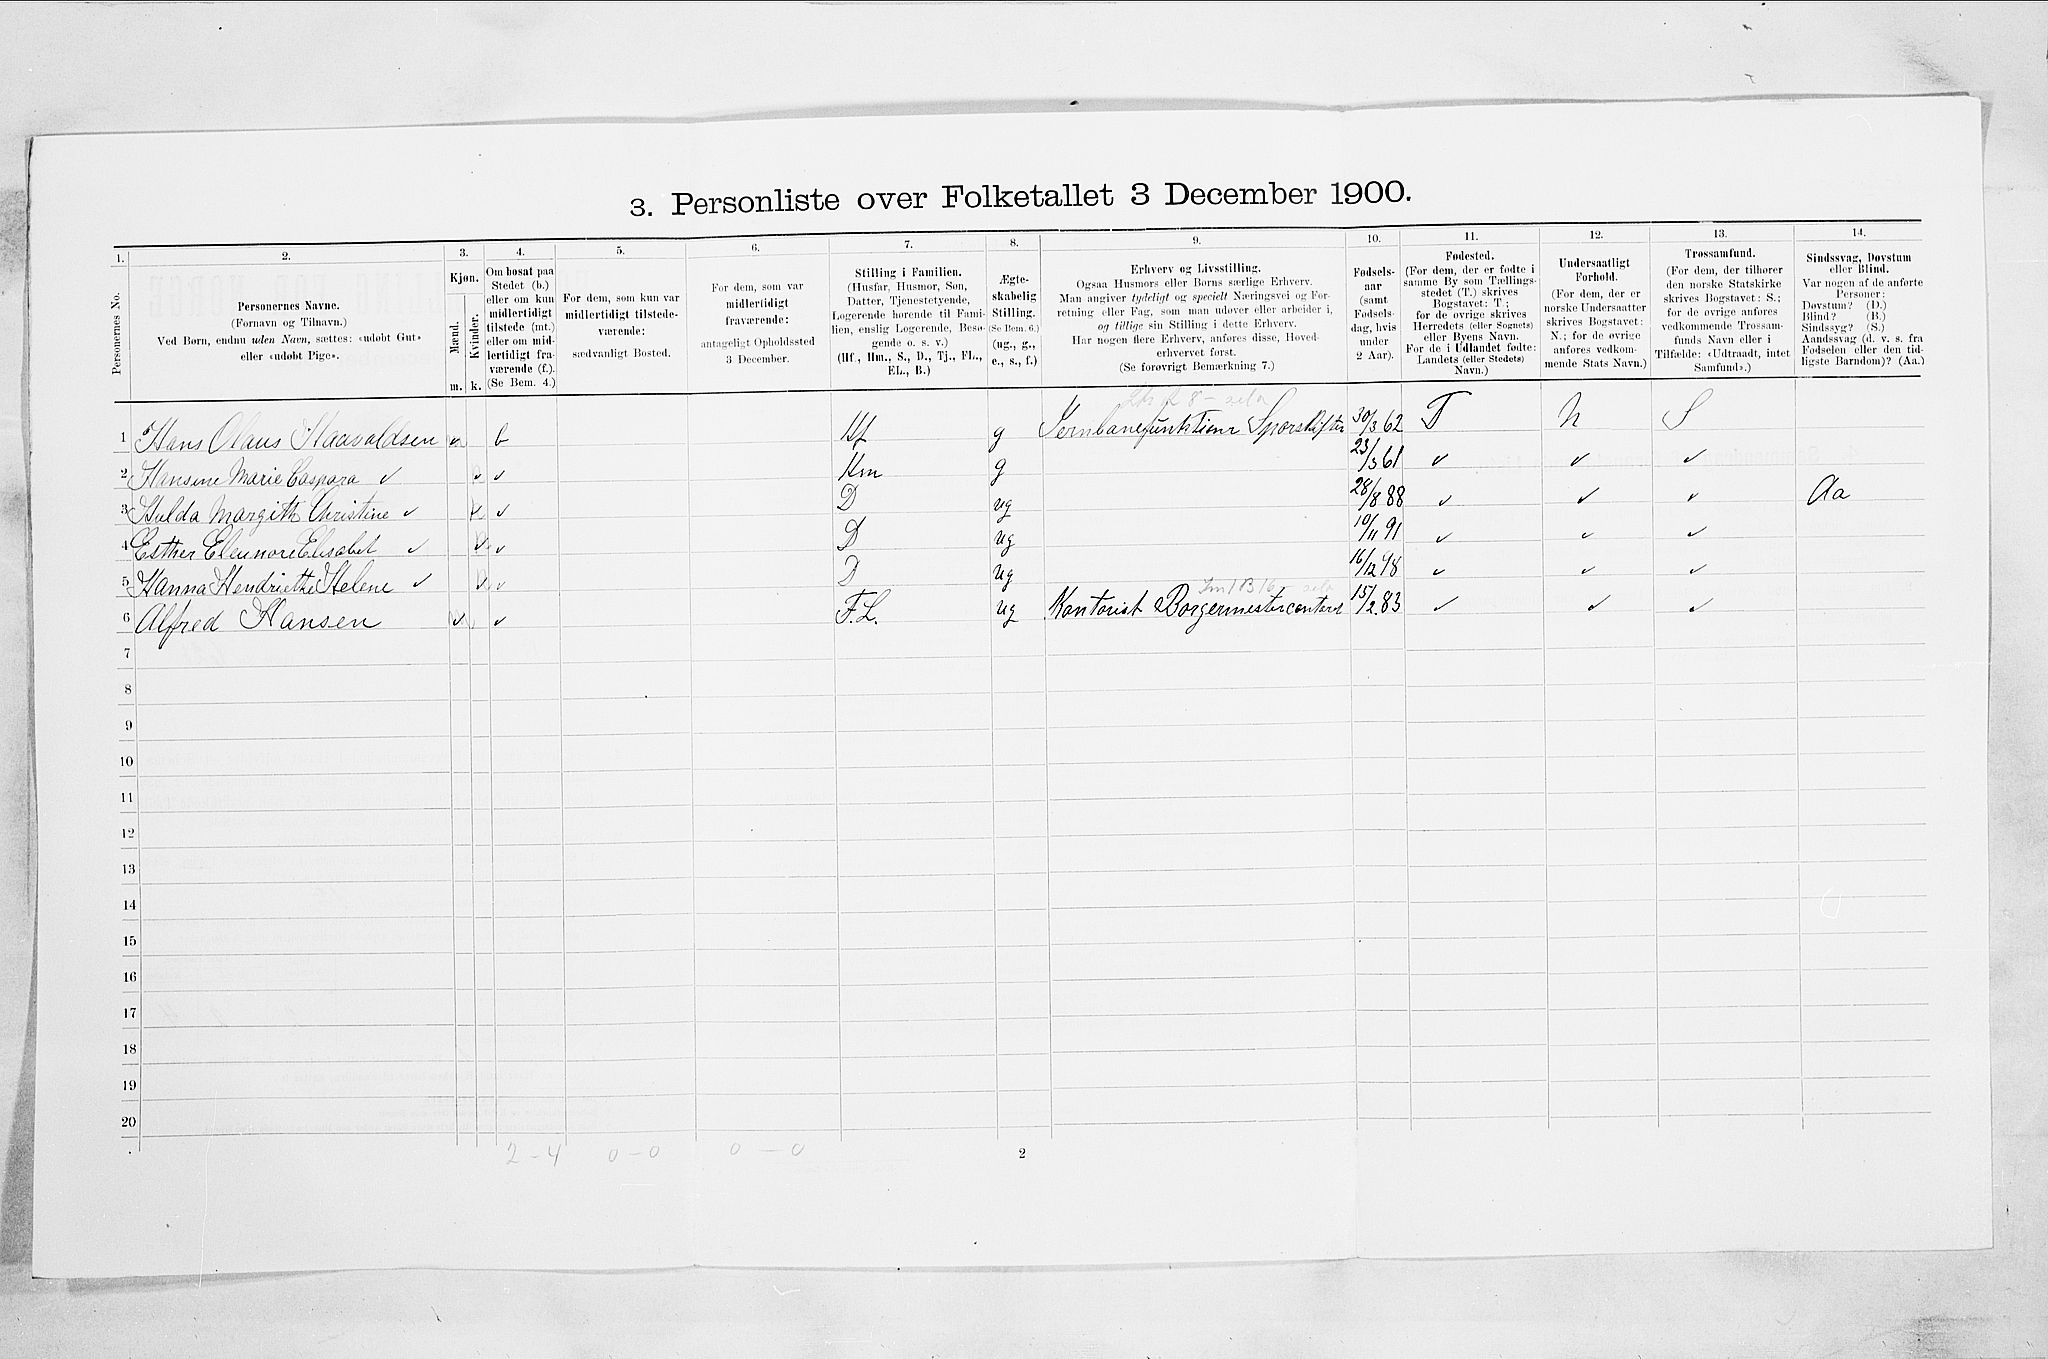 3. Personliste over Folketallet 3 December 1900.
1. 2. 3. 4. 5. 6. 7. 8. 9. 10. 11. 12. 13. 14.
Personernes No.
Personernes Navne.
(Fornavn og Tilnavn.)
Ved Børn, endnu uden Navn, sættes: «udøbt Gut»
eller «udøbt Pige».
Kjøn.
Mænd.
Kvinder.
m. k.
Om bosat paa
Stedet (b.)
eller om kun
midlertidigt
tilstede (mt.)
eller om mid-
lertidigt fra-
værende (f.).
(Se Bem. 4.)
For dem, som kun var
midlertidigt tilstede-
værende:
sædvanligt Bosted.
For dem, som var
midlertidigt
fraværende:
antageligt Opholdssted
3 December.
Stilling i Familien.
(Husfar, Husmor, Søn,
Datter, Tjenestetyende,
Logerende hørende til Fami-
lien, enslig Logerende, Besø-
gende o. s. v.)
(Hf., Hm., S., D., Tj., FL.,
EL., B.)
Ægte-
skabelig
Stilling.
(Se Bem. 6.)
(ug., g.,
e., s., f.)
Erhverv og Livsstilling.
Ogsaa Husmors eller Børns særlige Erhverv.
Man angiver tydeligt og specielt Næringsvei og For-
retning eller Fag, som man udøver eller arbeider i,
og tillige sin Stilling i dette Erhverv.
Har nogen flere Erhverv, anføres disse, Hoved-
erhvervet først.
(Se forøvrigt Bemærkning 7.)
Fødsels-
aar
(samt
Fødsels-
dag, hvis
under
2 Aar).
Fødested.
(For dem, der er fødte i
samme By som Tællings-
stedet (T.) skrives
Bogstavet: T.;
for de øvrige skrives
Herredets (eller Sognets)
eller Byens Navn.
For de i Udlandet fødte:
Landets (eller Stedets)
Navn.)
Undersaatligt
Forhold.
(For dem, der er
norske Undersaatter
skrives Bogstavet:
N.; for de øvrige
anføres vedkom-
mende Stats Navn.)
Trossamfund.
(For dem, der tilhører
den norske Statskirke
skrives Bogstavet: S.;
for de øvrige anføres
vedkommende Trossam-
funds Navn eller i
Tilfælde: «Udtraadt, intet
Samfund».)
Sindssvag, Døvstum
eller Blind.
Var nogen af de anførte
Personer:
Døvstum? (D.)
Blind? (B.)
Sindssyg? (S.)
Aandssvag (d. v. s. fra
Fødselen eller den tid-
ligste Barndom)? (Aa.)
1 Hans Olaus Haavaldsen v b Hf g Jernbanefunktionær Sporskifter 30/3 62 T N S
2 Hansine Marie Caspara v v v Hm g 23/3 61 v v v
3 Hulda Margith Christine v v v D ug 28/8 88 v v v Aa
4 Esther Eleonore Elisabet v v v D ug 10/11 91 v v v
5 Hanna Hendriette Helene v v v D ug 16/12 98 v v v
6 Alfred Hansen v v F.L. ug Kontorist Borgermestercontoret 15/2 83 v v v
7
8
9
10
11
12
13
14
15
16
17
18
19
20
2-4 0-0 0-0 2